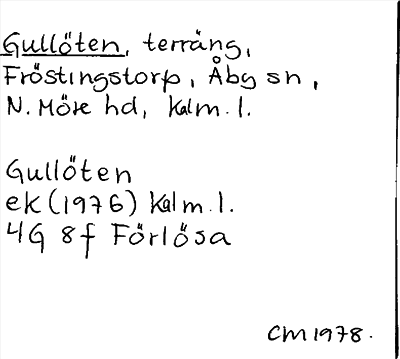 Gullöten, terräng,
Fröstingstorp, Åby sn,
N. Möre hd, Kalm. l.
Gullöten
ek (1976) Kalm. l.
4G 8f Förlösa
CM 1978.